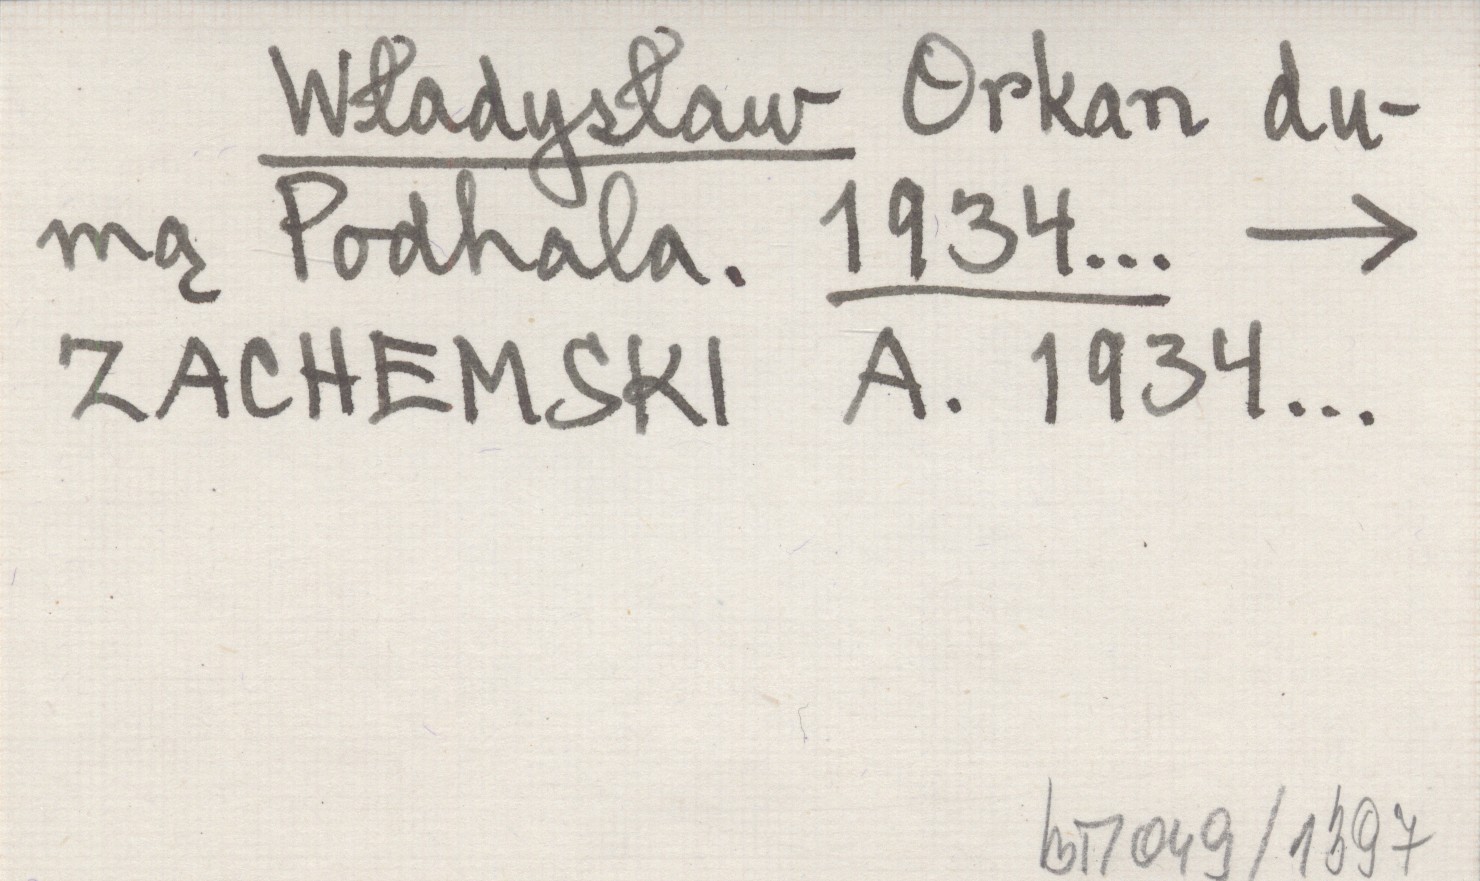 Władysław Orkan du-
mą Podhala. 1934... →
ZACHEMSKI A. 1934...
049/1397